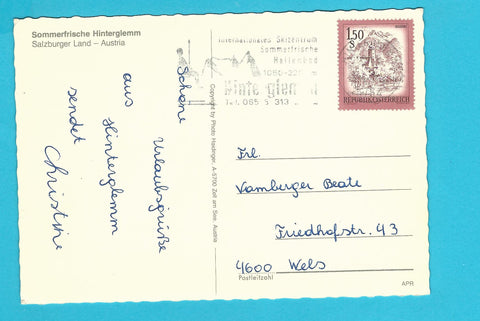 Sommerfrische Hinterglemm
Salzburger Land – Austria
Internationales Skizentrum
Sommerfrische
Hallenbad
1050-22
m
Hinterglemm
Tel. 065
313
1.50
S
REPUBLIK ÖSTERREICH
Schöne
Urlaubsgrüße
aus Hinterglemm
sendet
Christine
Copyright by Photo Haidinger, A-5700 Zell am See, Austria
Frl.
Vamberger Beate
Friedhofstr. 43
4600 Wels
Postleitzahl
APR